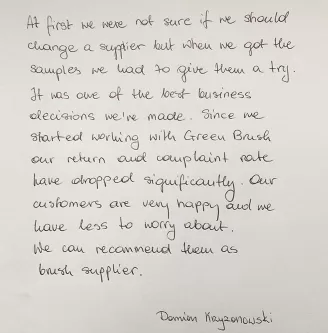 At first we were not sure if we should
change a supplier but when we got the
samples we had to give them a try.
It was one of the best business
decisions we've made. Since we
started working with Green Brush
our return and complaint rate
have dropped significantly. Our
customers are very happy and we
have less to worry about.
We can recommend them as
brush supplier.
Damian Kryzonowski